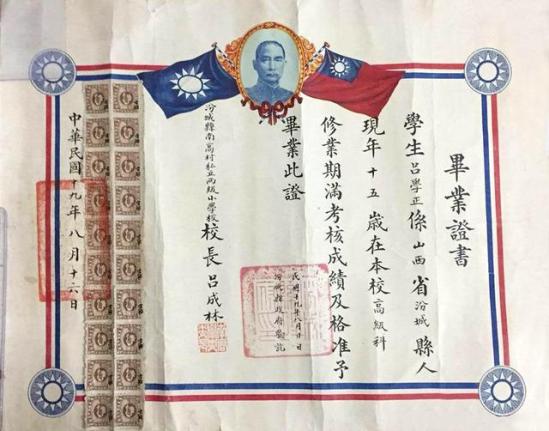 畢業證書
學生呂學正係山西省汾城縣人
現年十五歲在本校高級科
修業期滿考核成績及格准予
畢業此證
汾城縣南高村私立兩級小學校校長呂成林
中華民國十九年八月十六日
民國十九年八月 日
汾城縣政府驗訖